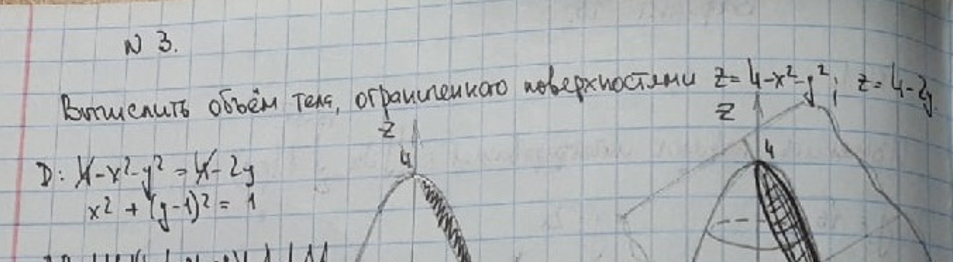 N 3.
Вычислить объём тела, ограниченного поверхностями z = 4-x²-y²; z = 4-2y.
z
z
4
4
D: 4-x²-y² = 4-2y
x² + (y-1)² = 1